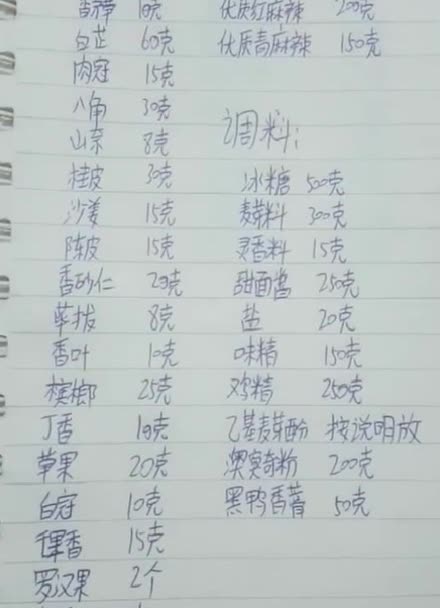 香茅 10克 优质红麻辣 200克
白芷 60克 优质青麻辣 150克
肉冠 15克
八角 30克
山奈 8克 调料:
桂皮 30克 冰糖 500克
沙姜 15克 300克
陈皮 15克 灵香料 15克
香砂仁 20克 甜面酱 250克
荜拔 8克 盐 20克
香叶 10克 味精 150克
槟榔 25克 鸡精 250克
丁香 10克 乙基麦芽酚 按说明放
草果 20克 澳臭奇粉 200克
白冠 10克 黑鸭香膏 50克
15克
罗汉果 2个